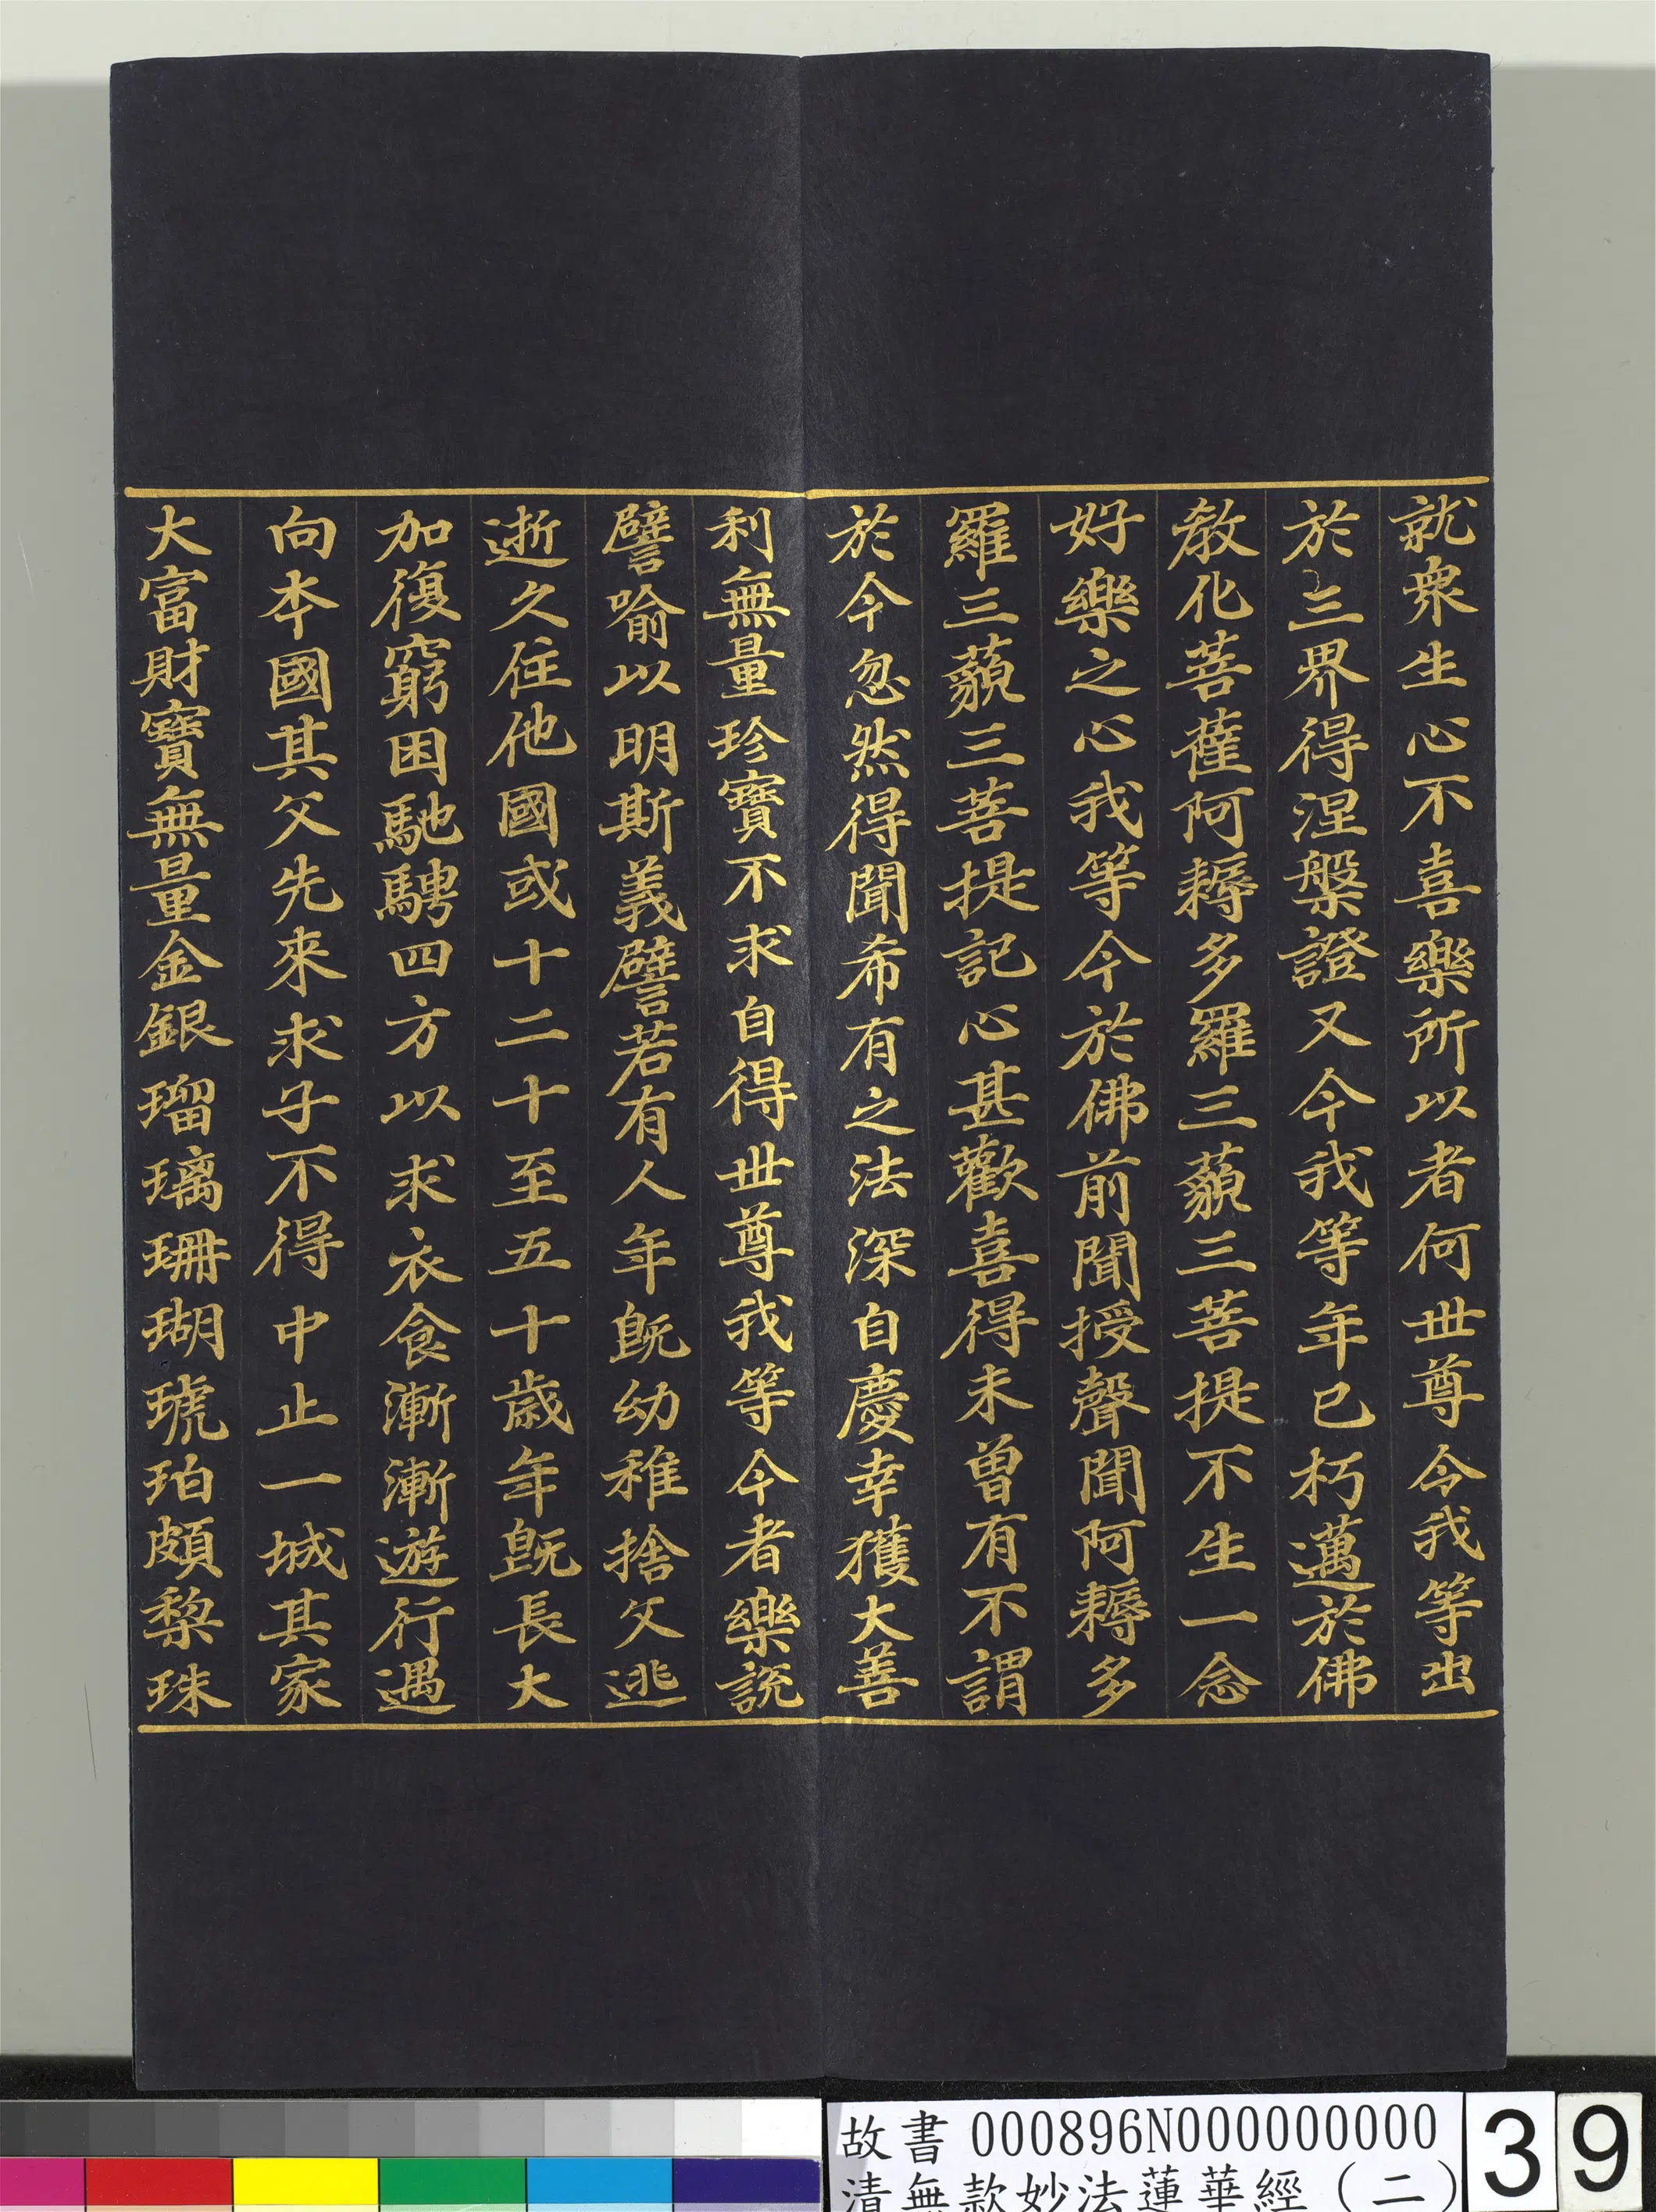 就衆生心不喜樂所以者何世尊令我等出
於三界得涅槃證又今我等年已朽邁於佛
教化菩薩阿耨多羅三藐三菩提不生一念
好樂之心我等今於佛前聞授聲聞阿耨多
羅三藐三菩提記心甚歡喜得未曾有不謂
於今忽然得聞希有之法深自慶幸獲大善
利無量珍寶不求自得世尊我等今者樂說
譬喻以明斯義譬若有人年既幼稚捨父逃
逝久住他國或十二十至五十歲年既長大
加復窮困馳騁四方以求衣食漸漸遊行遇
向本國其父先來求子不得中止一城其家
大富財寶無量金銀瑠璃珊瑚琥珀頗棃珠
故書 000896N000000000
清無款妙法蓮華經(二)
39